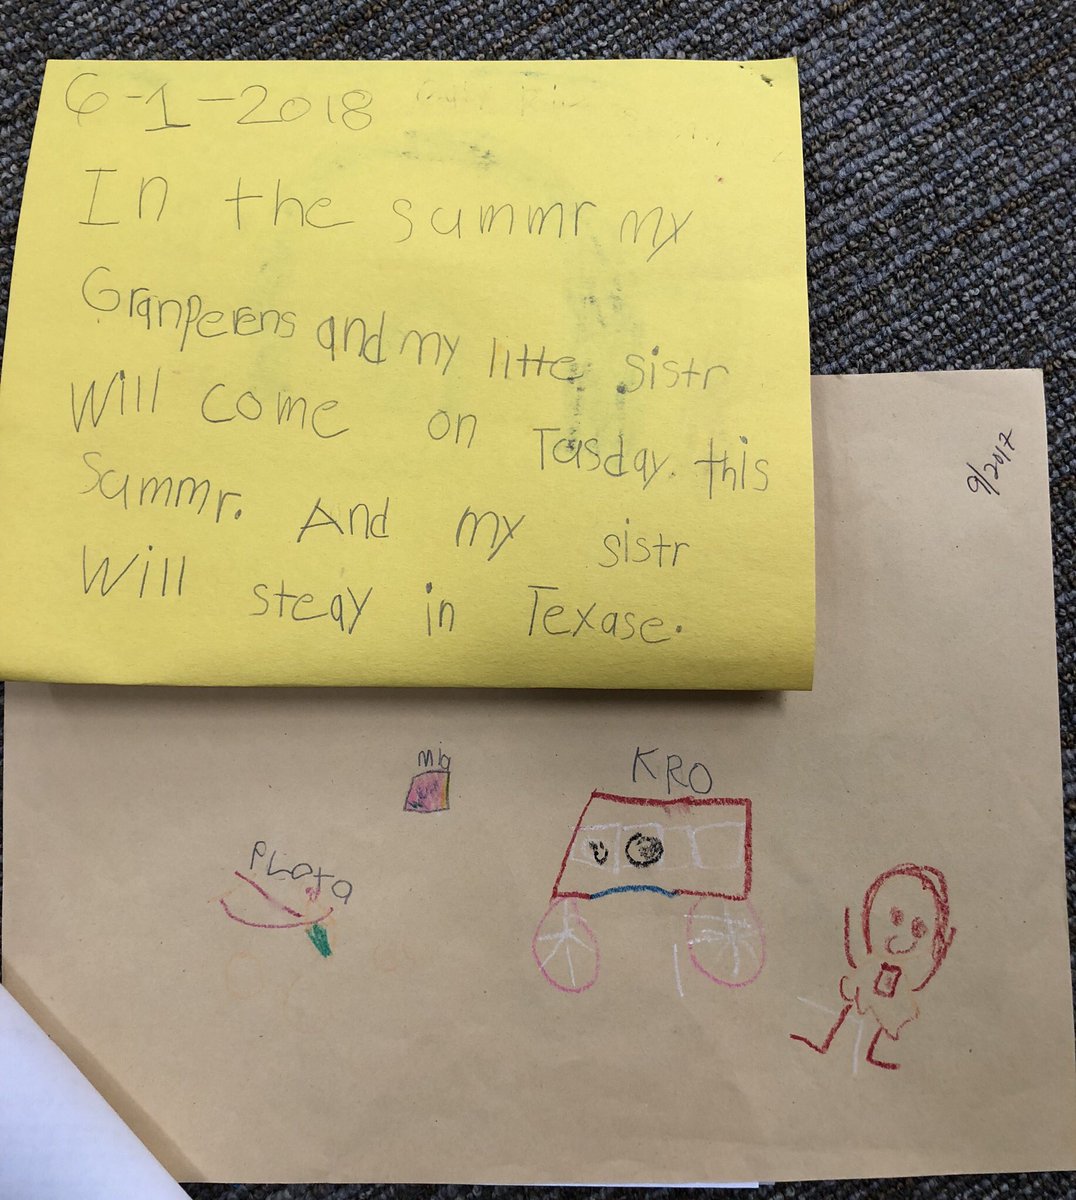 6-1-2018
In the summr my
Granperens and my litte sistr
Will come on Tasday. this
Summr. And my sistr
Will steay in Texase.
9/2017
Mia
KRO
PLATA